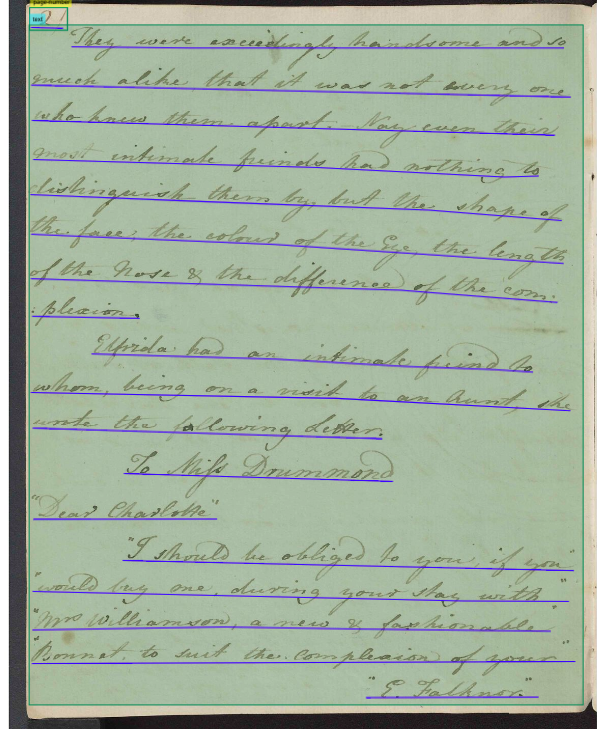 21
They were exceedingly handsome and so
much alike, that it was not every one
who knew them apart. Nay even their
most intimate freinds had nothing to
distinguish them by, but the shape of
the face, the colour of the Eye, the length
of the Nose & the difference of the com:
:plexion.
Elfrida had an intimate freind to
whom, being on a visit to an Aunt, she
wrote the following Letter.
To Miss Drummond
"Dear Charlotte"
"I should be obliged to you, if you"
"would buy me, during your stay with"
"Mrs Williamson, a new & fashionable"
"Bonnet, to suit the complexion of your"
"E. Falknor."